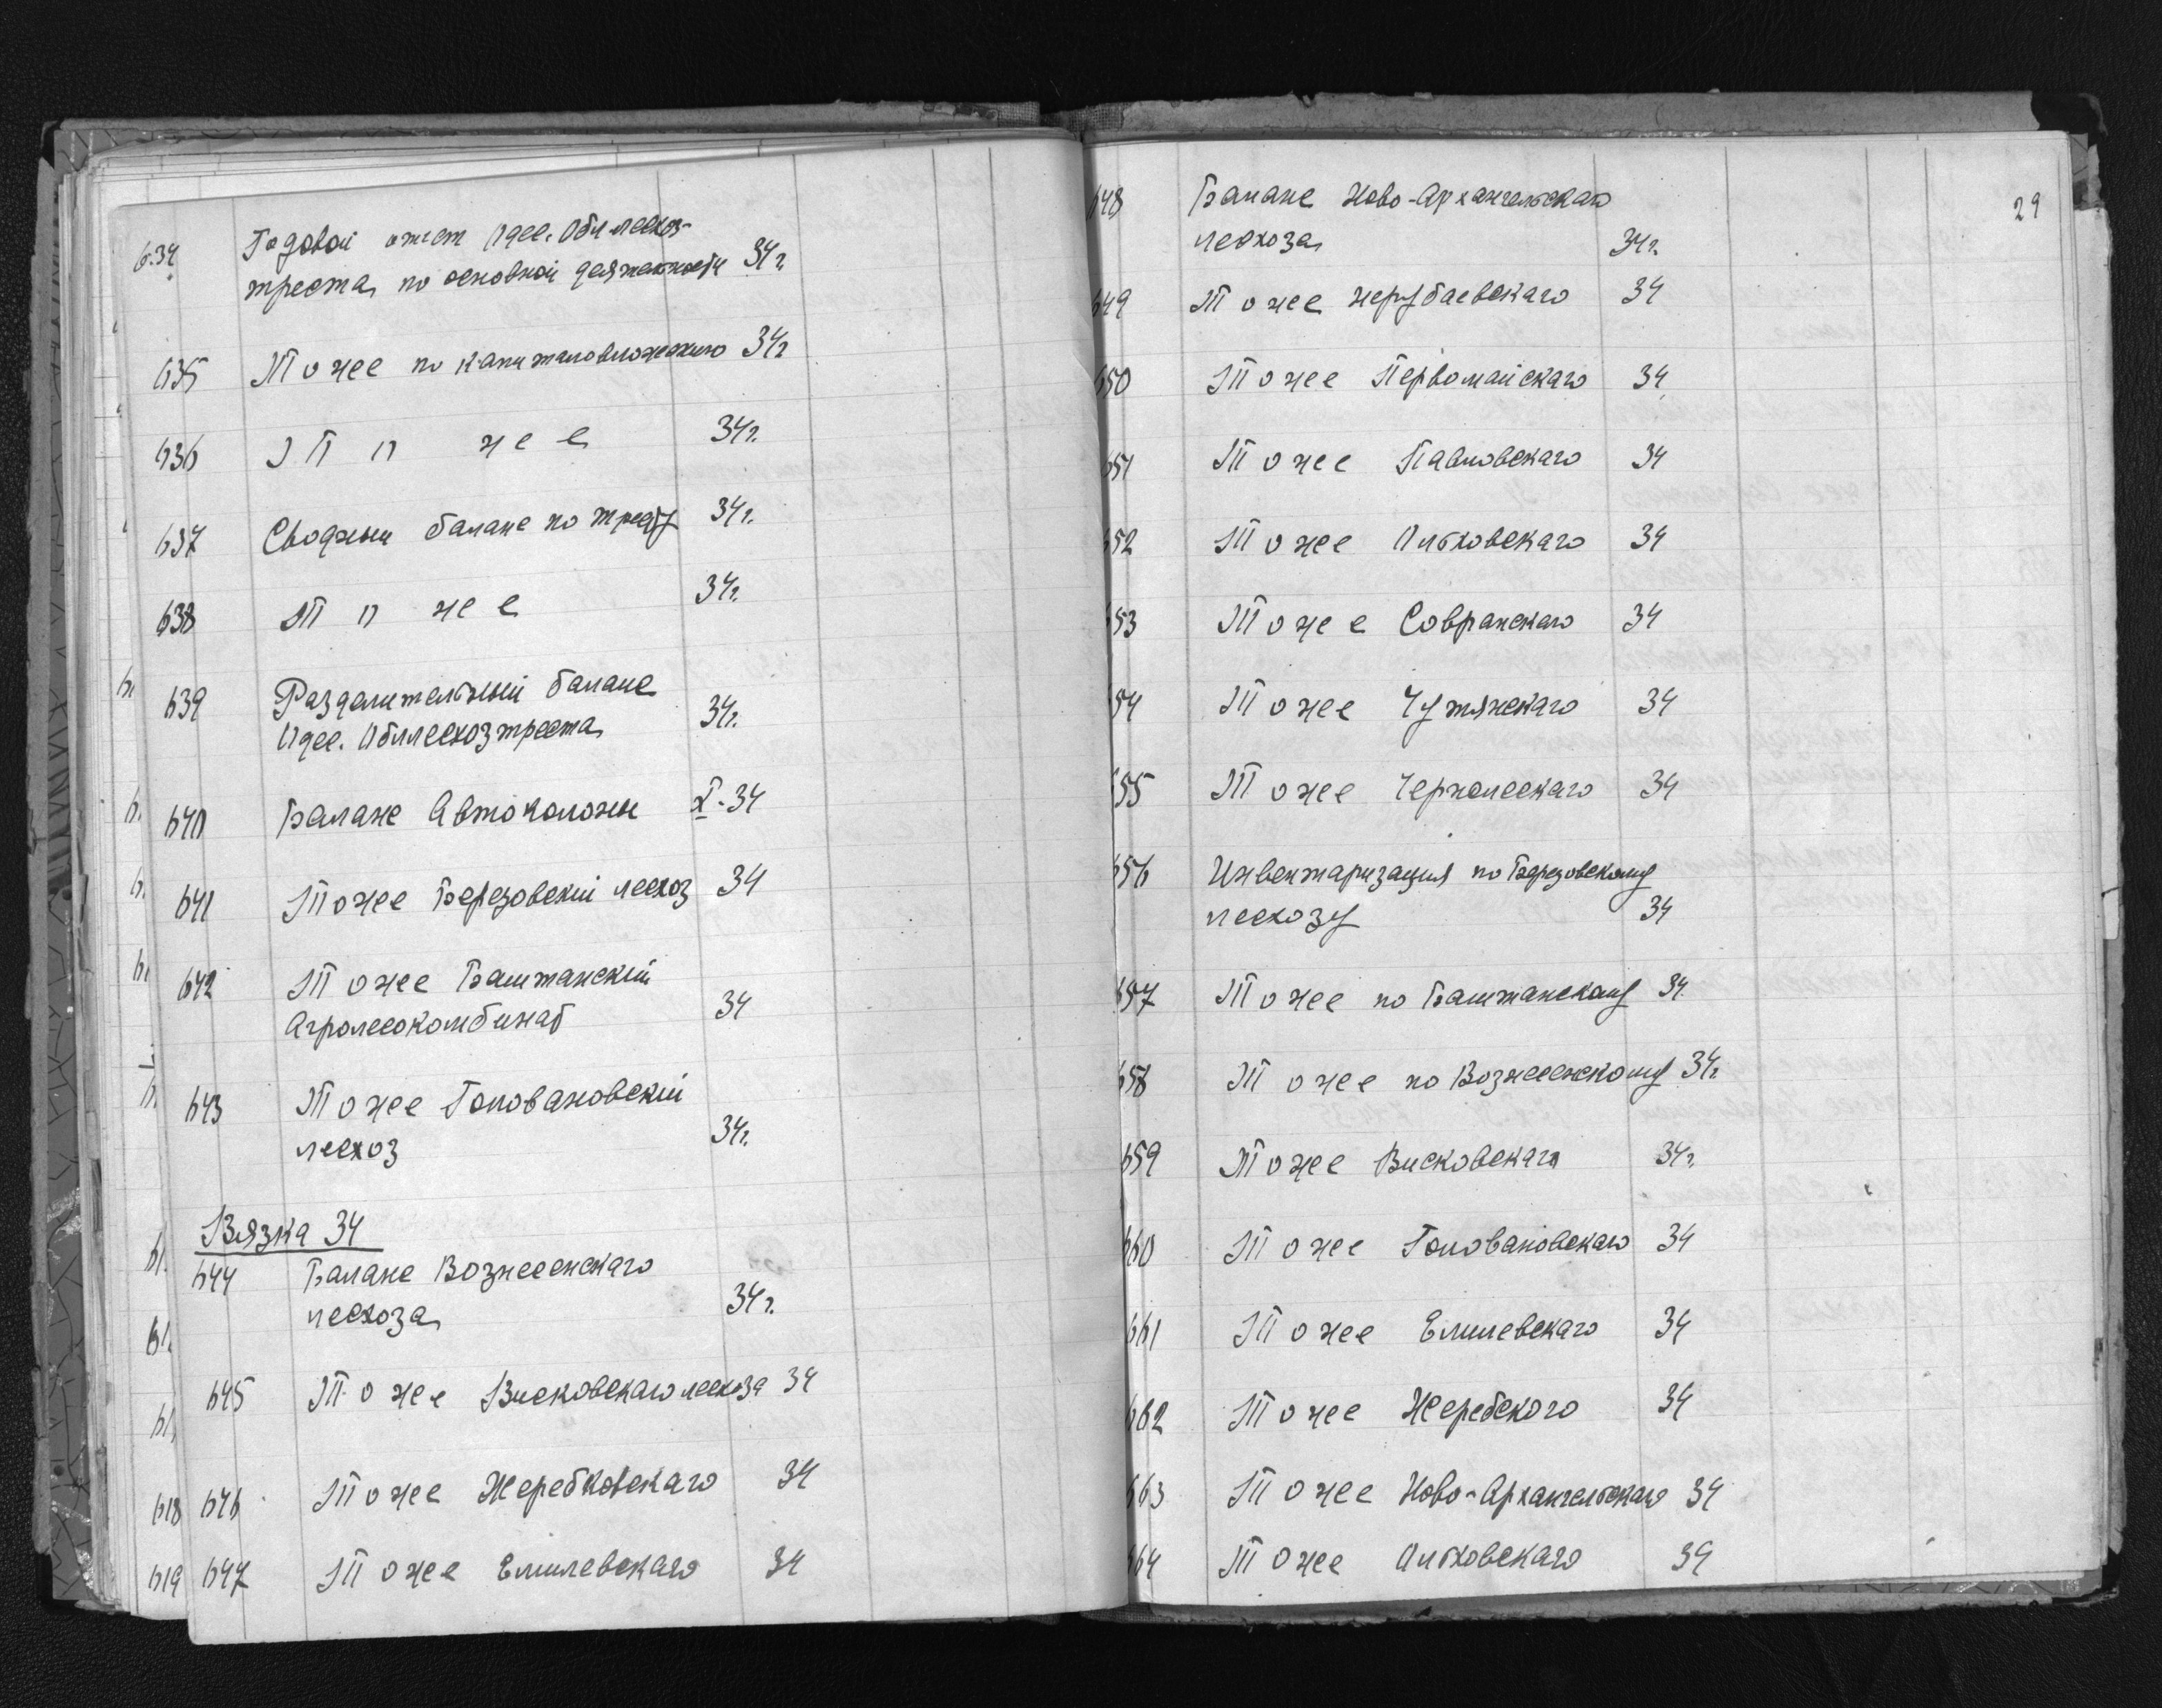 634 Годовой отчет Одес. Обл-лесхоз-
треста по основной деятельности 34г.
635 То же по капиталовложению 34г
636 То же 34г.
637 Сводный баланс по тресту 34г.
638 То же 34г.
639 Разделительный баланс
Одес. Обллесхозтреста 34г.
640 Баланс Автоколоны X-34
641 То же Березовский лесхоз 34
642 То же Баштанский
Агролесокомбинат 34
643 То же Головановский
лесхоз 34г.
Вязка 34
644 Баланс Вознесенскаго
лесхоза 34г.
645 То же Висковскаго лесхоза 34
618 646 То же Жеребковскаго 34
619 647 То же Емилевскаго 34
29
648 Баланс Ново-Архангельскаго
лесхоза 34г.
649 То же Нерубаевскаго 34
650 То же Первомайскаго 34
651 То же Павловскаго 34
652 То же Ольховскаго 34
653 То же Савранскаго 34
654 То же Чутянскаго 34
655 То же Чернолесскаго 34
656 Инвентаризация по Березовскому
лесхозу 34
657 То же по Баштанскому 34
658 То же по Вознесенскому 34г.
659 То же Висковскаго 34г.
660 То же Головановскаго 34
661 То же Емилевскаго 34
662 То же Жеребского 34
663 То же Ново-Архангельскаго 34
664 То же Ольховскаго 34